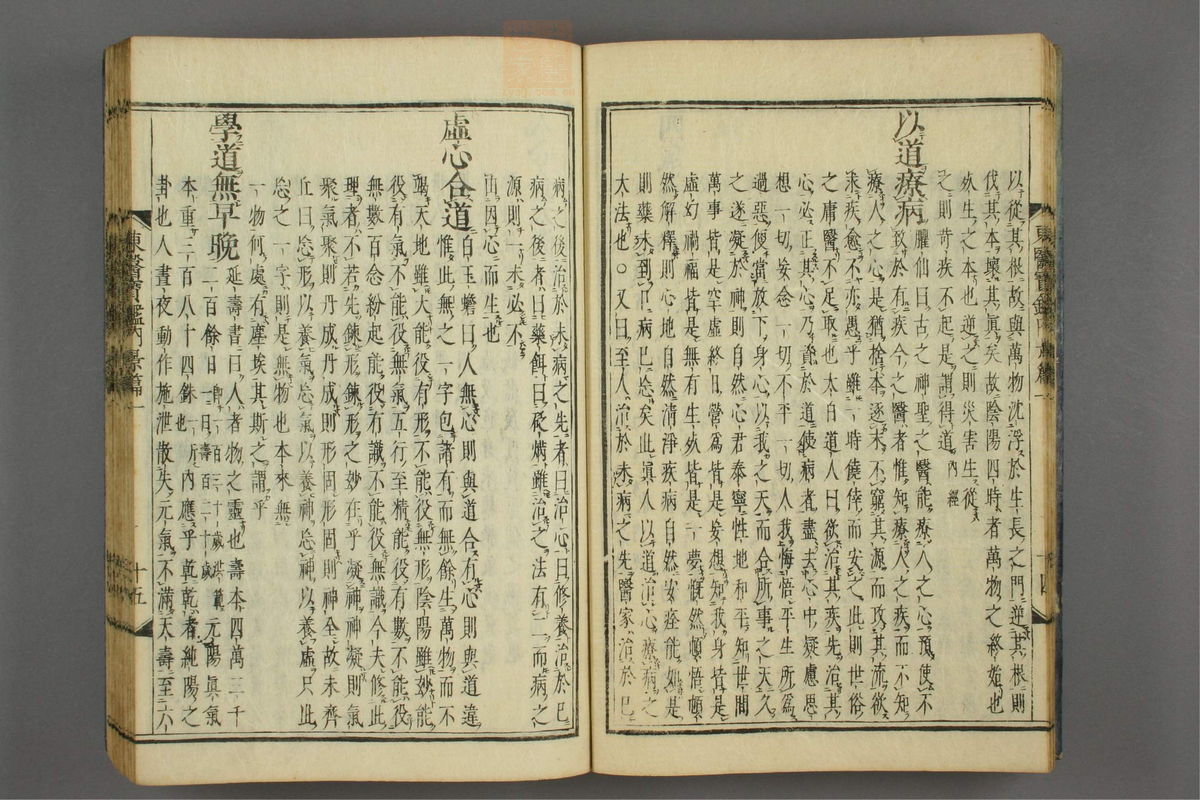 以從其根故與萬物沈浮於生長之門逆其根則
伐其本壞其眞矣故陰陽四時者萬物之終始也
死生之本也逆之則災害生從
之則苛疾不起是謂得道內經
以道療病
臞仙曰古之神聖之醫能療人之心預使不
致於有疾今之醫者惟知療人之疾而不知
療人之心是猶捨本逐末不窮其源而攻其流欲
求疾愈不亦愚乎雖一時僥倖而安之此則世俗
之庸醫不足取也太白道人曰欲治其疾先治其
心必正其心乃資於道使病者盡去心中疑慮思
想一切妄念一切不平一切人我悔悟平生所爲
過惡便當放下身心以我之天而合所事之天久
之遂凝於神則自然心君泰寧性地和平知世間
萬事皆是空虛終日營爲皆是妄想知我身皆是
虛幻禍福皆是無有生死皆是一夢慨然頓悟頓
然解釋則心地自然清淨疾病自然安痊能如是
則藥未到口病已忘矣此眞人以道治心療病之
大法也○又曰至人治於未病之先醫家治於已
東醫寶鑑內景篇一
十四
病之後治於未病之先者曰治心曰修養治於已
病之後者曰藥餌曰砭焫雖治之法有二而病之
源則一未必不
由因心而生也
虛心合道
白玉蟾曰人無心則與道合有心則與道違
惟此無之一字包諸有而無餘生萬物而不
竭天地雖大能役有形不能役無形陰陽雖妙能
役有氣不能役無氣五行至精能役有數不能役
無數百念紛起能役有識不能役無識今夫修此
理者不若先鍊形鍊形之妙在乎凝神神凝則氣
聚氣聚則丹成丹成則形固形固則神全故宋齊
丘曰忘形以養氣忘氣以養神忘神以養虛只此
忘之一字則是無物也本來無
一物何處有塵埃其斯之謂乎
學道無早晚
延壽書曰人者物之靈也壽本四萬三千
二百餘日卽一百二十歲洪範一曰壽百二十歲元陽眞氣
本重三百八十四銖一斤也內應乎乾乾者純陽之
卦也人晝夜動作施泄散失元氣不滿天壽至六
東醫寶鑑內景篇一
十五